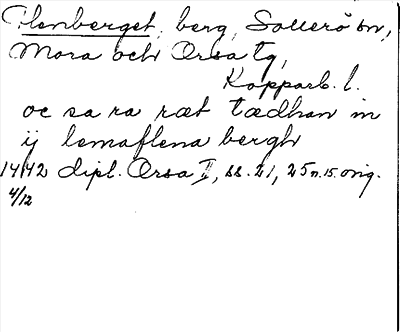 Flenberget, berg, Sollerö sn,
Mora och Orsa tg,
Kopparb. l.
oc sa ra ræt tædhan in
ij lemaflena bergh
1442 dipl. Orsa II, ss. 21, 25 n. 15. orig.
4/12